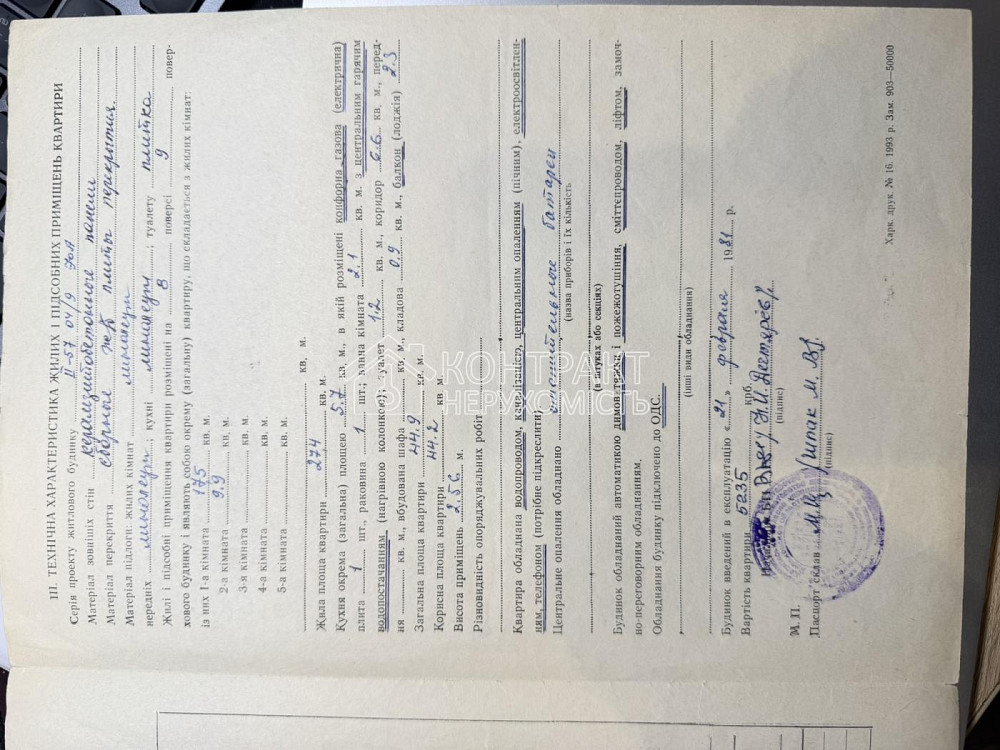 III. ТЕХНІЧНА ХАРАКТЕРИСТИКА ЖИЛИХ І ПІДСОБНИХ ПРИМІЩЕНЬ КВАРТИРИ
Серія проекту житлового будинку II-57 04/9 70А
Матеріал зовнішніх стін керамзитобетонные панели
Матеріал перекриття сборные ж/б плиты перекрытия.
Матеріал підлоги: жилих кімнат линолеум
передніх линолеум; кухні линолеум; туалету плитка
Жилі і підсобні приміщення квартири розміщені на 8 поверсі 9 повер-
хового будинку і являють собою окрему (загальну) квартиру, що складається з жилих кімнат:
із них 1-а кімната 17,5 кв. м.
2-а кімната 9,9 кв. м.
3-я кімната кв. м.
4-а кімната кв. м.
5-а кімната кв. м.
кв. м.
Жила площа квартири 27,4 кв. м.
Кухня окрема (загальна) площею 5,7 кв. м., в якій розміщені конфорна газова (електрична)
плита 1 шт., раковина 1 шт.; ванна кімната 2,1 кв. м. з центральним гарячим
водопостачанням (нагрівною колонкою); туалет 1,2 кв. м., коридор 6,6 кв. м., перед-
ня кв. м., вбудована шафа кв. м., кладова 0,9 кв. м., балкон (лоджія) 2,3
Загальна площа квартири 44,9 кв. м.
Корисна площа квартири 44,2 кв. м.
Висота приміщень 2,56 м.
Різновидність опоряджувальних робіт
Квартира обладнана водопроводом, каналізацією, центральним опаленням (пічним), електроосвітлен-
ням, телефоном (потрібне підкреслити)
Центральне опалення обладнано батареи
(назва приборів і їх кількість
(в штуках або секціях)
Будинок обладнаний автоматикою димовитяжки і пожежотушіння, сміттєпроводом, ліфтом, замоч-
но-переговорним обладнанням.
Обладнання будинку підключено до ОДС.
(інші види обладнання)
Будинок введений в експлуатацію «21» февраля 1981 р.
Вартість квартири 5235 крб.
(підпис)
М. П.
Паспорт склав
(підпис)
Харк. друк. № 16. 1993 р. Зам. 903—50000
КОНТРАКТ
НЕРУХОМІСТЬ